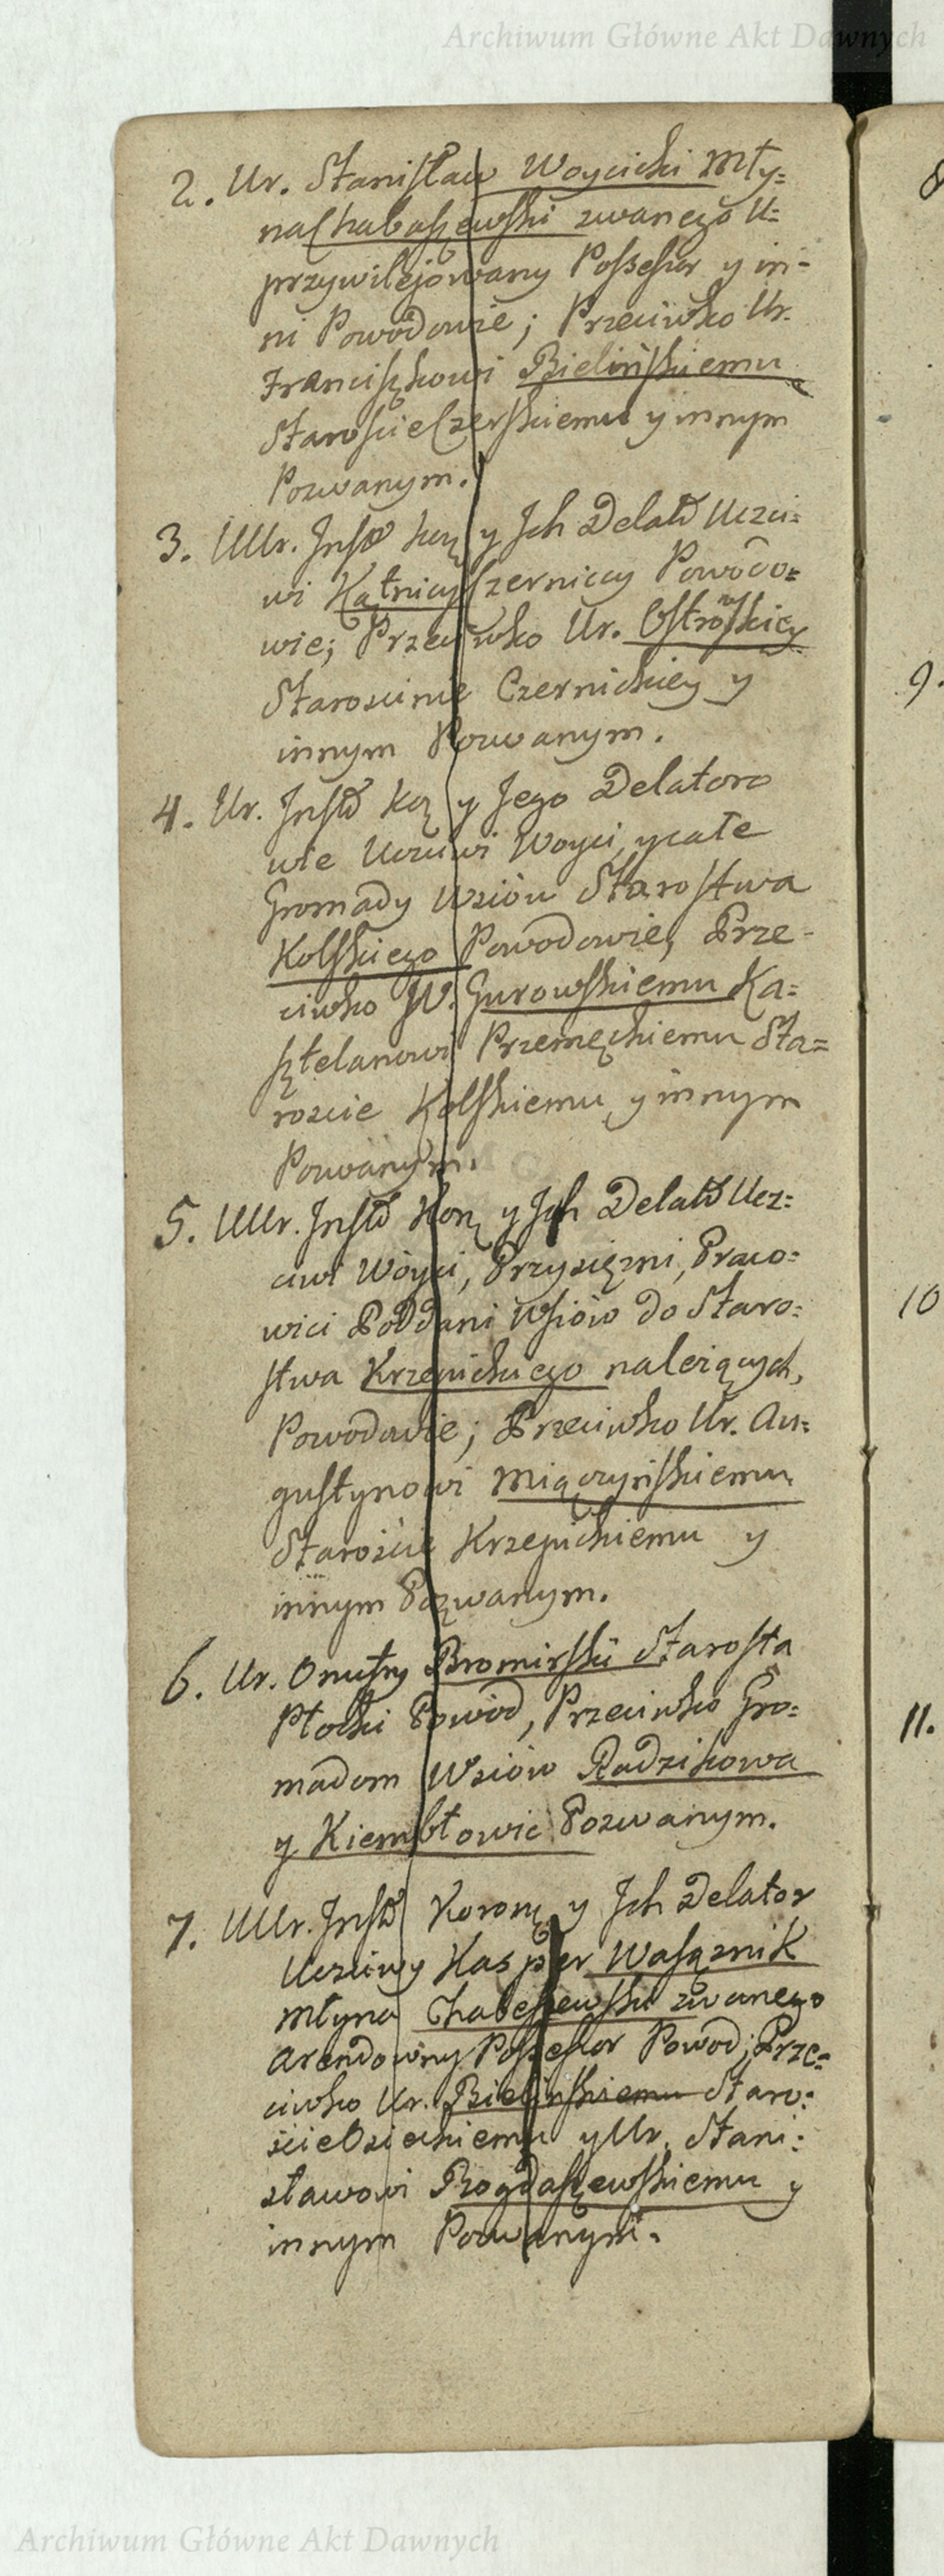 Archiwum Główne Akt Dawnych
2. Ur. Stanisław Woycicki Mły=
na Chabaszewski zwanego U=
przywilejowany Possessor y in-
ni Powodowie; Przeciwko Ur.
Franciszkowi Bielińskiemu
Staroście Czerskiemu y innym
Pozwanym.
3. UUr. Insti̅ Kor̨ y Ich Delati̅ Uczci=
wi Kątnicy Czerniccy Powodo=
wie; Przeciwko Ur. Ostrowskiey
Starościnie Czernickiey y
innym Pozwanym.
4. Ur. Insti̅ Kor̨ y Jego Delatoro
wie Uczciwi Woyci, y całe
Gromady Wsiów Starostwa
Kolskiego Powodowie, Prze-
ciwko W. Gurowskiemu Ka=
sztelanowi Przemęckiemu Sta=
roscie Kolskiemu y innym
Pozwanym.
5. UUr. Insti̅ Kor̨ y Ich Delati̅ Ucz=
ciwi Wóyci, Przysięzni, Praco=
wici Poddani Wsiów do Staro=
stwa Krzepickiego należących,
Powodowie; Przeciwko Ur. Au=
gustynowi Miączyńskiemu
Starośćie Krzepickiemu y
innym Pozwanym.
6. Ur. Onufry Bromirski Starosta
Płocki Powód, Przeciwko Gro=
madom Wsiów Radzikowa
y Kiembłowic Pozwanym.
7. UUr. Insti̅ Korony y Ich Delator
Uczciwy Kasper Wasąznik
Młyna Chabeszewski zwanego
Arendowny Possessor Powod; Prze=
ciwko Ur. Bielinskiemu Staro=
ście Osieckiemu y Ur. Stani=
sławowi Bogdaszewskiemu y
innym Pozwanym.
9.
10
11.
Archiwum Główne Akt Dawnych